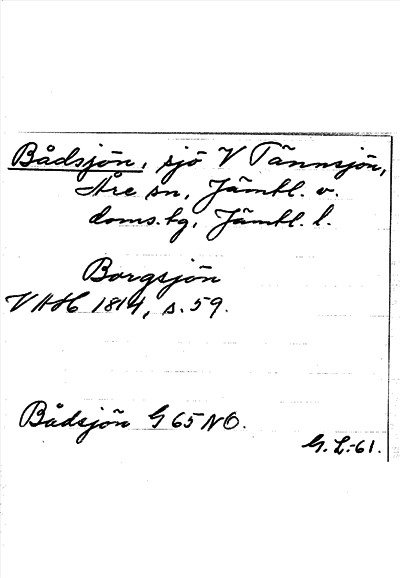 Bådsjön, sjö V Tännsjön,
Åre sn, Jämtl. v.
doms.tg, Jämtl. l.
Borgsjön
VAH 1814, s. 59.
Bådsjön G 65 NO.
G. L. -61.